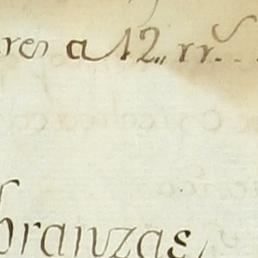 res a 12„ rr.^s..
branzas,